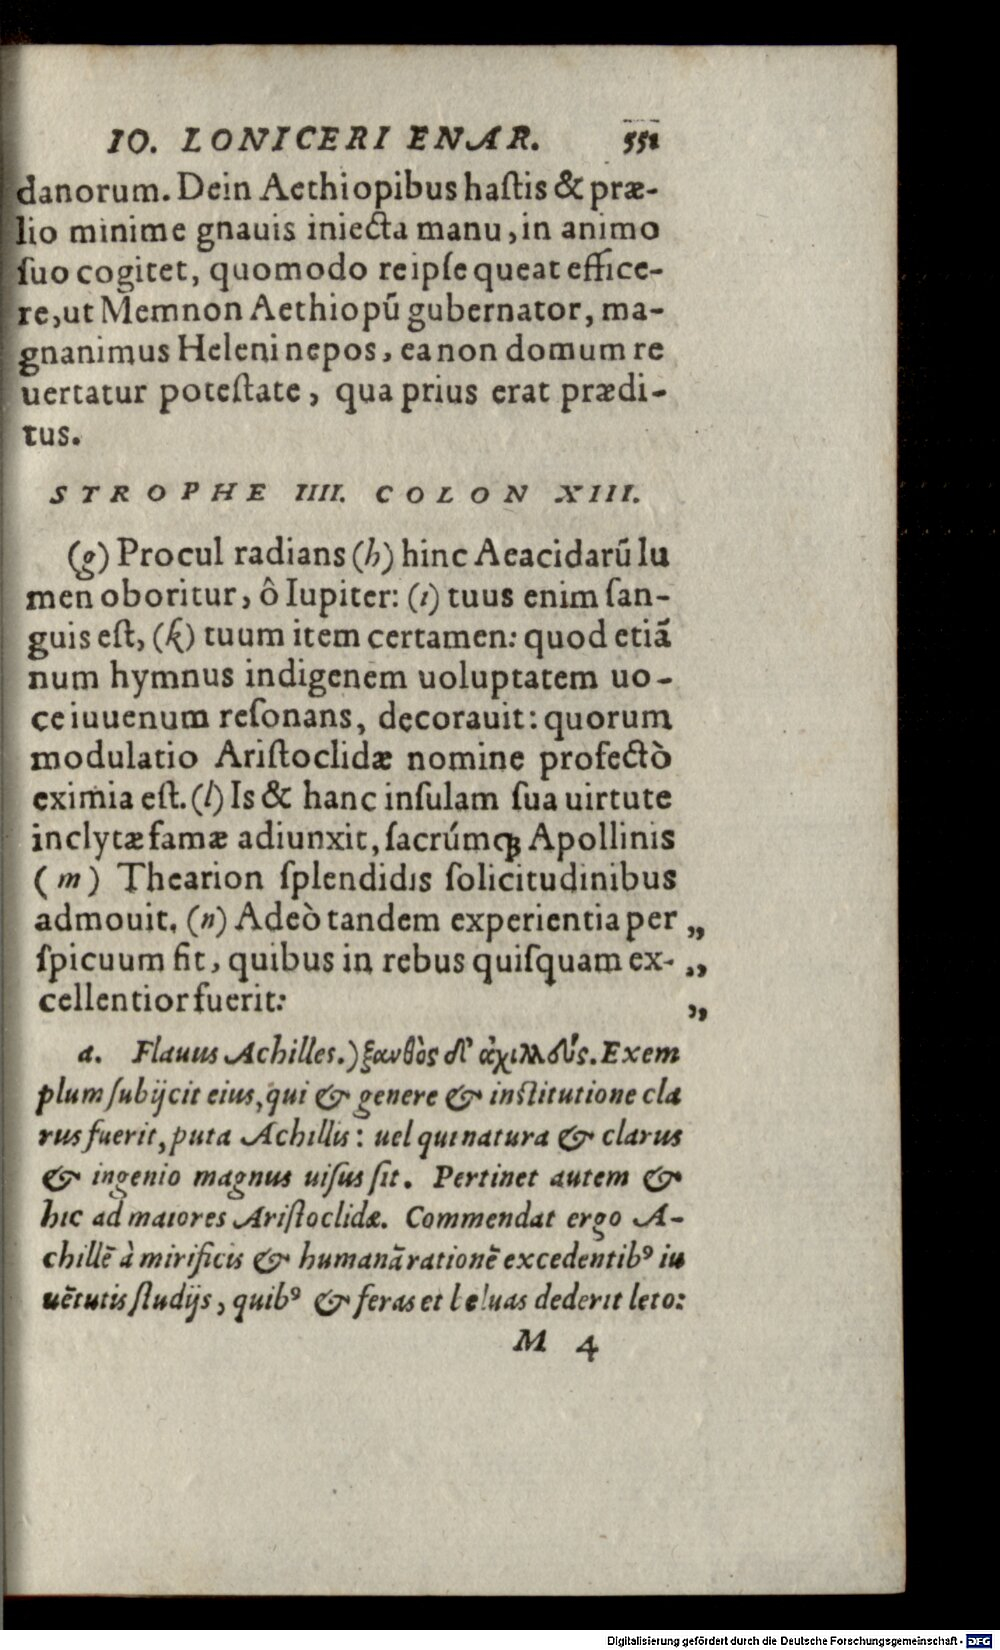 IO. LONICERI ENAR. 551
danorum. Dein Aethiopibus haſtis & præ-
lio minime gnauis iniecta manu, in animo
ſuo cogitet, quomodo reipſe queat effice-
re, ut Memnon Aethiopū gubernator, ma-
gnanimus Heleni nepos, ea non domum re
uertatur poteſtate, qua prius erat prædi-
tus.
STROPHE IIII. COLON XIII.
(g) Procul radians (h) hinc Aeacidarū lu
men oboritur, ô Iupiter: (i) tuus enim ſan-
guis eſt, (k) tuum item certamen: quod etiā
num hymnus indigenem uoluptatem uo-
ce iuuenum reſonans, decorauit: quorum
modulatio Ariſtoclidæ nomine profectò
eximia eſt. (l) Is & hanc inſulam ſua uirtute
inclytæ famæ adiunxit, ſacrúmq; Apollinis
(m) Thearion ſplendidis ſolicitudinibus
admouit. (n) Adeò tandem experientia per „
ſpicuum fit, quibus in rebus quiſquam ex- „
cellentior fuerit: „
a. Flauus Achilles.) ξανθὸς δ' ἀχιλλεύς. Exem
plum ſubijcit eius, qui & genere & inſtitutione cla
rus fuerit, puta Achillis: uel qui natura & clarus
& ingenio magnus uiſus ſit. Pertinet autem &
hic ad maiores Ariſtoclidæ. Commendat ergo A-
chillē à mirificis & humanā rationē excedentibꝰ iu
uētutis ſtudijs, quibꝰ & feras et beluas dederit leto:
M 4
Digitalisierung gefördert durch die Deutsche Forschungsgemeinschaft - DFG